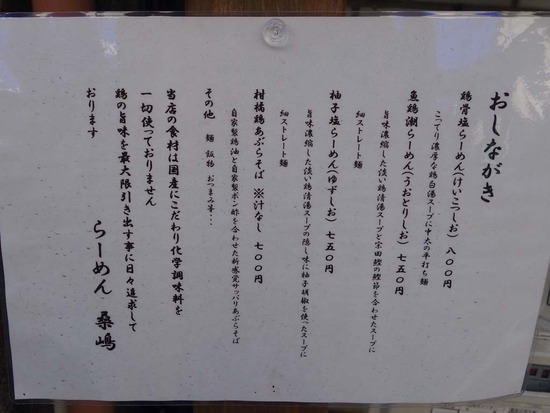 おしながき
鶏骨塩らーめん(けいこつしお) 八〇〇円
こってり濃厚な鶏白湯スープに中太の平打ち麺
魚鶏潮らーめん(うおとりしお) 七五〇円
旨味濃縮した淡い鶏清湯スープと宗田鰹の鰹節を合わせたスープに
細ストレート麺
柚子塩らーめん(ゆずしお) 七五〇円
旨味濃縮した淡い鶏清湯スープの隠し味に柚子胡椒を使ったスープに
細ストレート麺
柑橘鶏あぶらそば ※汁なし 七〇〇円
自家製鶏油と自家製ポン酢を合わせた新感覚サッパリあぶらそば
その他 麺 飯物 おつまみ等・・・
当店の食材は国産にこだわり化学調味料を
一切使っておりません
鶏の旨味を最大限引き出す事に日々追求して
おります
らーめん 桑嶋